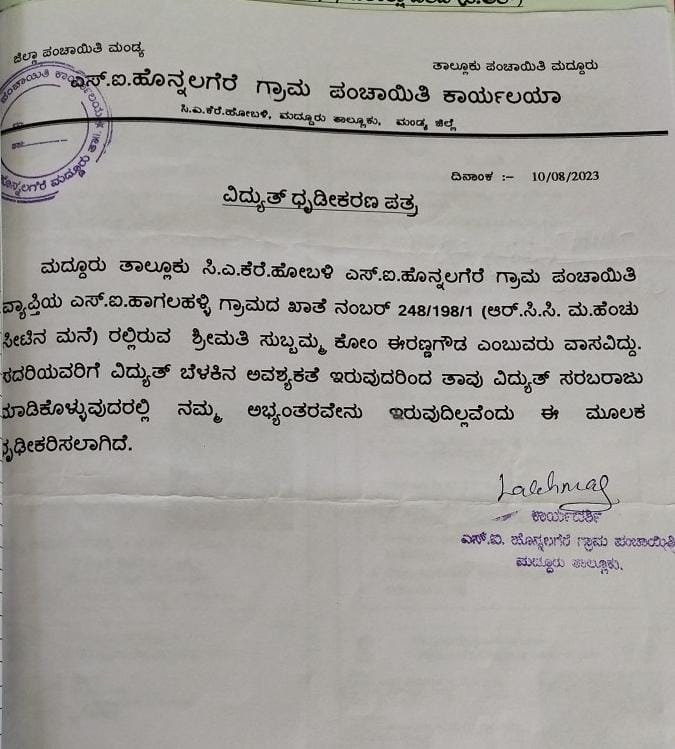 ಜಿಲ್ಲಾ ಪಂಚಾಯಿತಿ ಮಂಡ್ಯ
ತಾಲ್ಲೂಕು ಪಂಚಾಯಿತಿ ಮದ್ದೂರು
ಎಸ್.ಐ.ಹೊನ್ನಲಗೆರೆ ಗ್ರಾಮ ಪಂಚಾಯಿತಿ ಕಾರ್ಯಲಯಾ
ಸಿ.ಎ.ಕೆರೆ.ಹೋಬಳಿ, ಮದ್ದೂರು ತಾಲ್ಲೂಕು, ಮಂಡ್ಯ ಜಿಲ್ಲೆ
ದಿನಾಂಕ :- 10/08/2023
ವಿದ್ಯುತ್ ಧೃಡೀಕರಣ ಪತ್ರ
ಮದ್ದೂರು ತಾಲ್ಲೂಕು ಸಿ.ಎ.ಕೆರೆ.ಹೋಬಳಿ ಎಸ್.ಐ.ಹೊನ್ನಲಗೆರೆ ಗ್ರಾಮ ಪಂಚಾಯಿತಿ
ವ್ಯಾಪ್ತಿಯ ಎಸ್.ಐ.ಹಾಗಲಹಳ್ಳಿ ಗ್ರಾಮದ ಖಾತೆ ನಂಬರ್ 248/198/1 (ಆರ್.ಸಿ.ಸಿ. ಮ.ಹೆಂಚು
ಸೀಟಿನ ಮನೆ) ರಲ್ಲಿರುವ ಶ್ರೀಮತಿ ಸುಬ್ಬಮ್ಮ ಕೋಂ ಈರಣ್ಣಗೌಡ ಎಂಬುವರು ವಾಸವಿದ್ದು.
ಸದರಿಯವರಿಗೆ ವಿದ್ಯುತ್ ಬೆಳಕಿನ ಅವಶ್ಯಕತೆ ಇರುವುದರಿಂದ ತಾವು ವಿದ್ಯುತ್ ಸರಬರಾಜು
ಮಾಡಿಕೊಳ್ಳುವುದರಲ್ಲಿ ನಮ್ಮ ಅಭ್ಯಂತರವೇನು ಇರುವುದಿಲ್ಲವೆಂದು ಈ ಮೂಲಕ
ಧೃಢೀಕರಿಸಲಾಗಿದೆ.
ಕಾರ್ಯದರ್ಶಿ
ಎಸ್.ಐ. ಹೊನ್ನಲಗೆರೆ ಗ್ರಾಮ ಪಂಚಾಯಿತಿ
ಮದ್ದೂರು ತಾಲ್ಲೂಕು.